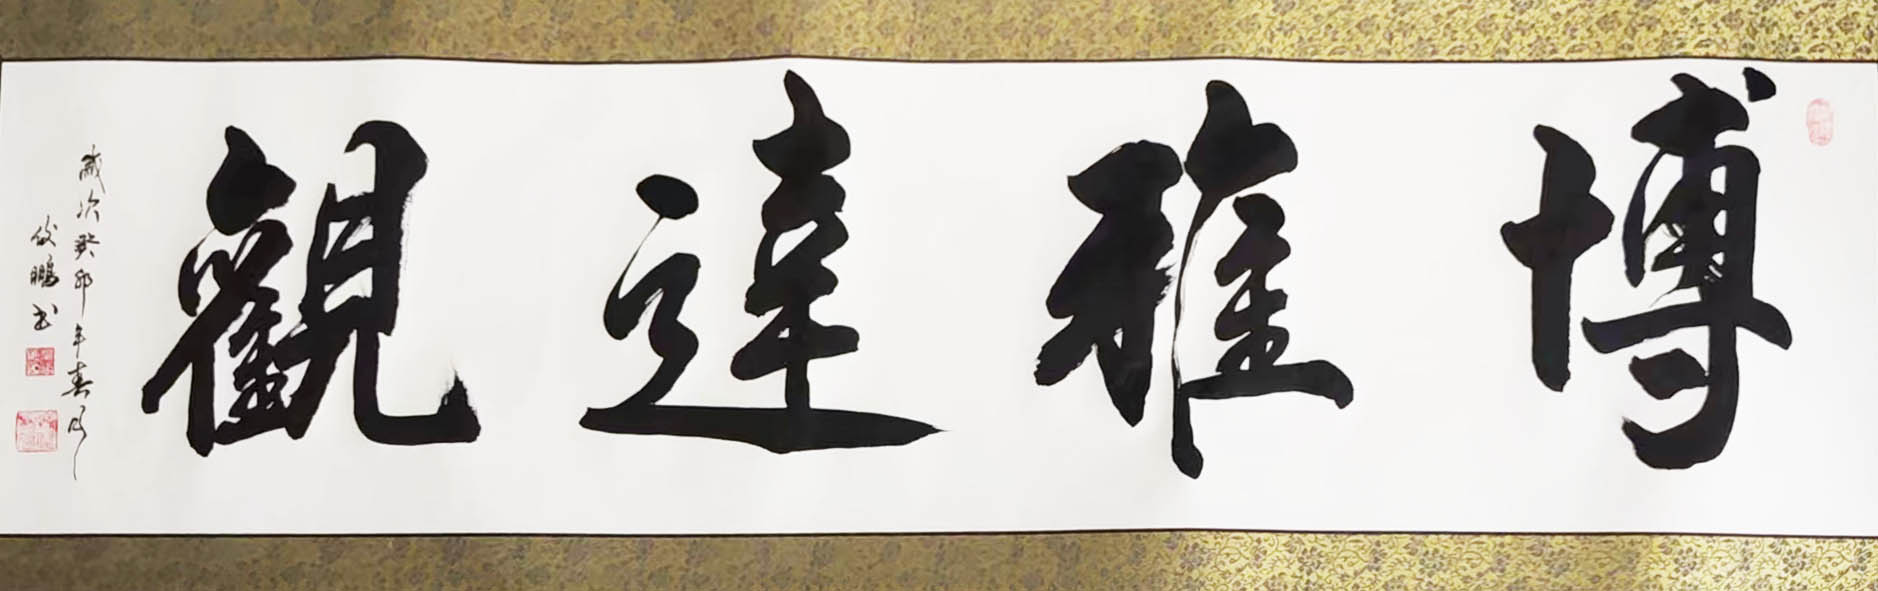 博雅達觀
歲次癸卯年春月
俊鵬书